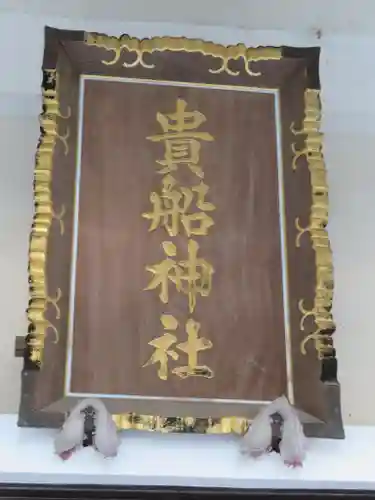 貴船神社